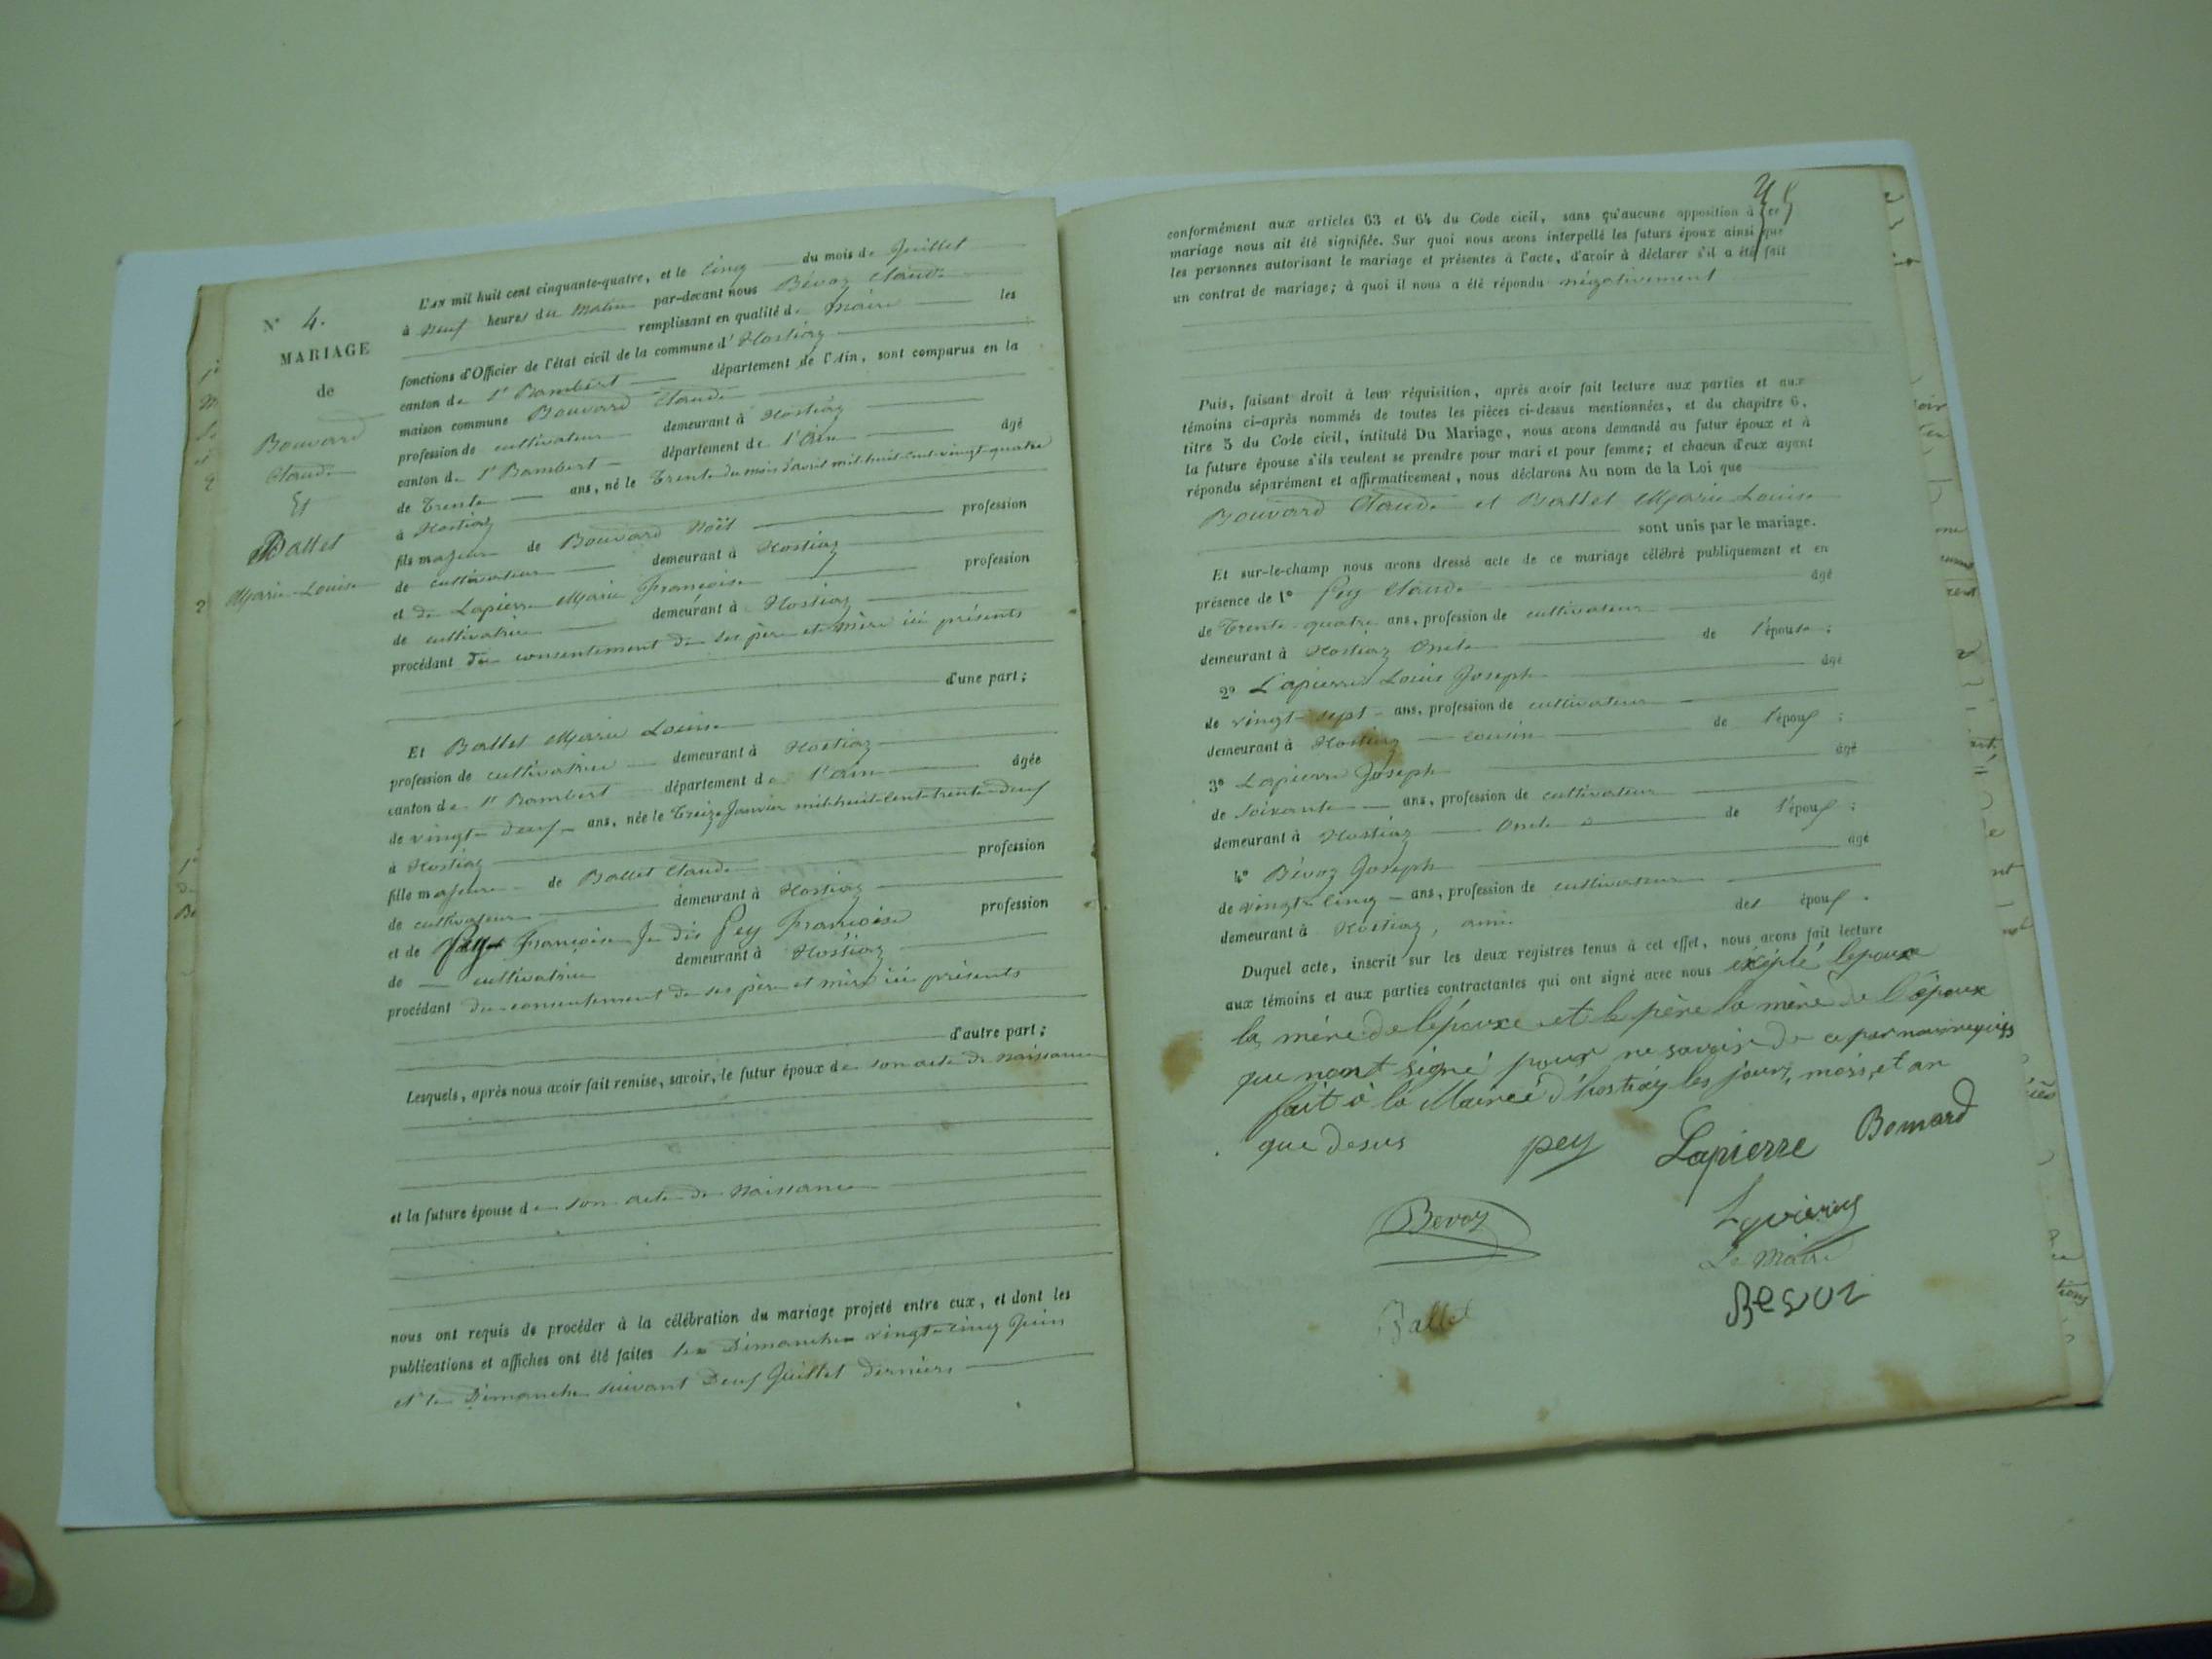 N° 4.
MARIAGE
de
Bouvard
Claude
Et
Ballet
Marie-Louise
L'AN mil huit cent cinquante-quatre, et le Cinq du mois de Juillet
à neuf heures du Matin par-devant nous Bévoz Claude
remplissant en qualité de Maire les
fonctions d'Officier de l'état civil de la commune d'Hostiaz
canton de St Rambert département de l'Ain, sont comparus en la
maison commune Bouvard Claude
profession de cultivateur demeurant à Hostiaz
canton de St Rambert département de l'Ain âgé
de Trente ans, né le Trente du mois d'avril mil-huit-cent-vingt-quatre
à Hostiaz
fils majeur de Bouvard Noël profession
de cultivateur demeurant à Hostiaz
et de Lapierre Marie Françoise profession
de cultivatrice demeurant à Hostiaz
procédant du consentement de ses père et mère ici présents
d'une part;
Et Ballet Marie Louise
profession de cultivatrice demeurant à Hostiaz
canton de St Rambert département de l'Ain âgée
de vingt-deux ans, née le Treize Janvier mil-huit-cent-trente-deux
à Hostiaz
fille majeure de Ballet Claude profession
de cultivateur demeurant à Hostiaz
et de Françoise Je dis Pey Françoise profession
de cultivatrice demeurant à Hostiaz
procédant du consentement de ses père et mère ici présents
d'autre part;
Lesquels, après nous avoir fait remise, savoir, le futur époux de son acte de Naissance
et la future épouse de son acte de Naissance
nous ont requis de procéder à la célébration du mariage projeté entre eux, et dont les
publications et affiches ont été faites les Dimanches vingt-cinq Juin
et le Dimanche suivant Deux Juillet derniers
conformément aux articles 63 et 64 du Code civil, sans qu'aucune opposition à ce
mariage nous ait été signifiée. Sur quoi nous avons interpellé les futurs époux ainsi que
les personnes autorisant le mariage et présentes à l'acte, d'avoir à déclarer s'il a été fait
un contrat de mariage; à quoi il nous a été répondu négativement
Puis, faisant droit à leur réquisition, après avoir fait lecture aux parties et aux
témoins ci-après nommés de toutes les pièces ci-dessus mentionnées, et du chapitre 6,
titre 5 du Code civil, intitulé Du Mariage, nous avons demandé au futur époux et à
la future épouse s'ils veulent se prendre pour mari et pour femme; et chacun d'eux ayant
répondu séparément et affirmativement, nous déclarons Au nom de la Loi que
Bouvard Claude et Ballet Marie Louise
sont unis par le mariage.
Et sur-le-champ nous avons dressé acte de ce mariage célébré publiquement et en
présence de 1° Pey Claude âgé
de Trente-quatre ans, profession de cultivateur
demeurant à Hostiaz Oncle de l'épouse;
2° Lapierre Louis Joseph âgé
de vingt-sept ans, profession de cultivateur
demeurant à Hostiaz cousin de l'époux;
3° Lapierre Joseph âgé
de Soixante ans, profession de cultivateur
demeurant à Hostiaz Oncle de l'époux;
4° Bévoz Joseph âgé
de vingt-cinq ans, profession de cultivateur
demeurant à Hostiaz, ami des époux.
Duquel acte, inscrit sur les deux registres tenus à cet effet, nous avons fait lecture
aux témoins et aux parties contractantes qui ont signé avec nous exépté lepouse
la mère de lépouxe et le père la mère de l'époux
que nont signé pour ne savoir de ce par nous requis
fait à la Mairié d'hostiaz les jours, mois, et an
que desus
pey Lapierre Bouvard
Bevoz
Le Maire
Ballet
Bevoz